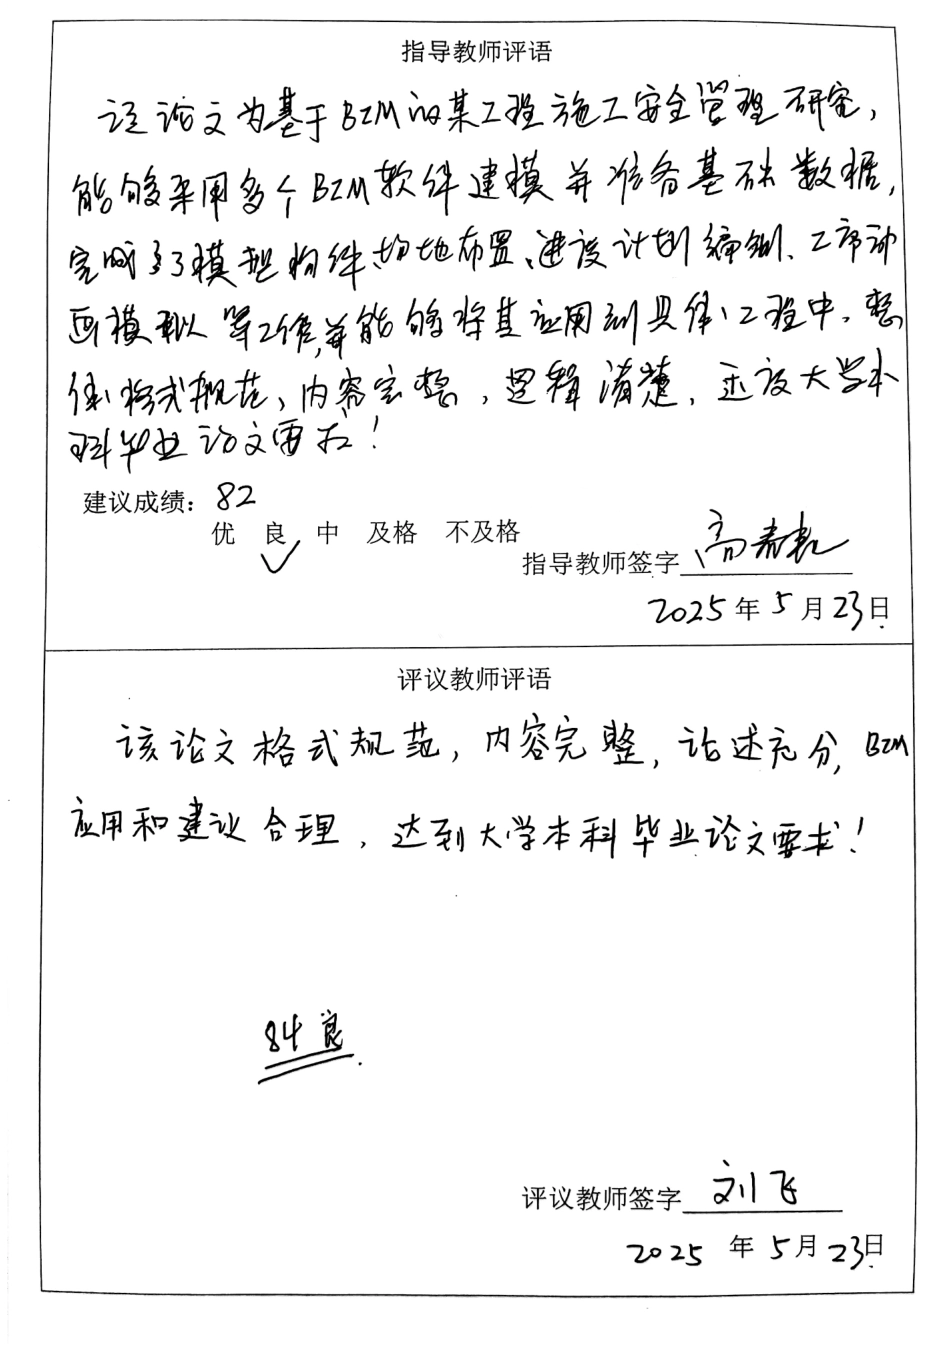 指导教师评语
该论文为基于BIM的某工程施工安全管理研究，
能够采用多个BIM软件建模并准备基础数据，
完成了模型构件场地布置、建设计划编制、工序动
画模拟等工作，并能够将其应用到具体工程中。整
体格式规范，内容完整，逻辑清楚，达到大学本
科毕业论文要求！
建议成绩：82
优 良 中 及格 不及格
指导教师签字 高
2025年5月23日
评议教师评语
该论文格式规范，内容完整，论述充分，BIM
应用和建议合理，达到大学本科毕业论文要求！
84 良
评议教师签字 刘飞
2025年5月23日